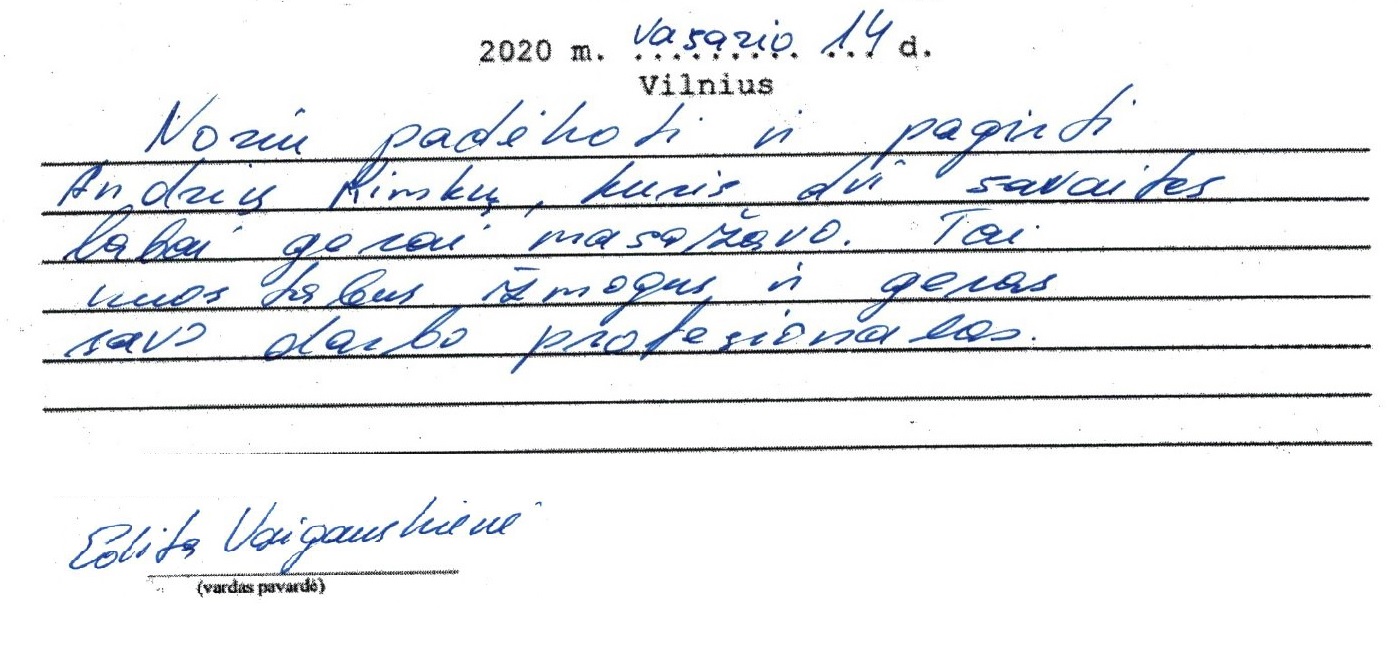 2020 m. vasario 14 d.
Vilnius
Noriu padėkoti ir pagirti
Andrių Rimkų, kuris dvi savaites
labai gerai masažavo. Tai
nuostabus žmogus ir geras
savo darbo profesionalas.
Edita
(vardas pavardė)